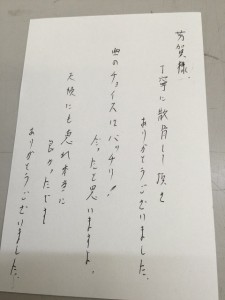 芳賀様
丁寧に散骨して頂き
ありがとうございました。
のチョイスはバッチリ!
だったと思いますよ。
天候にも恵れ本当に
良かったです
ありがとうございました。